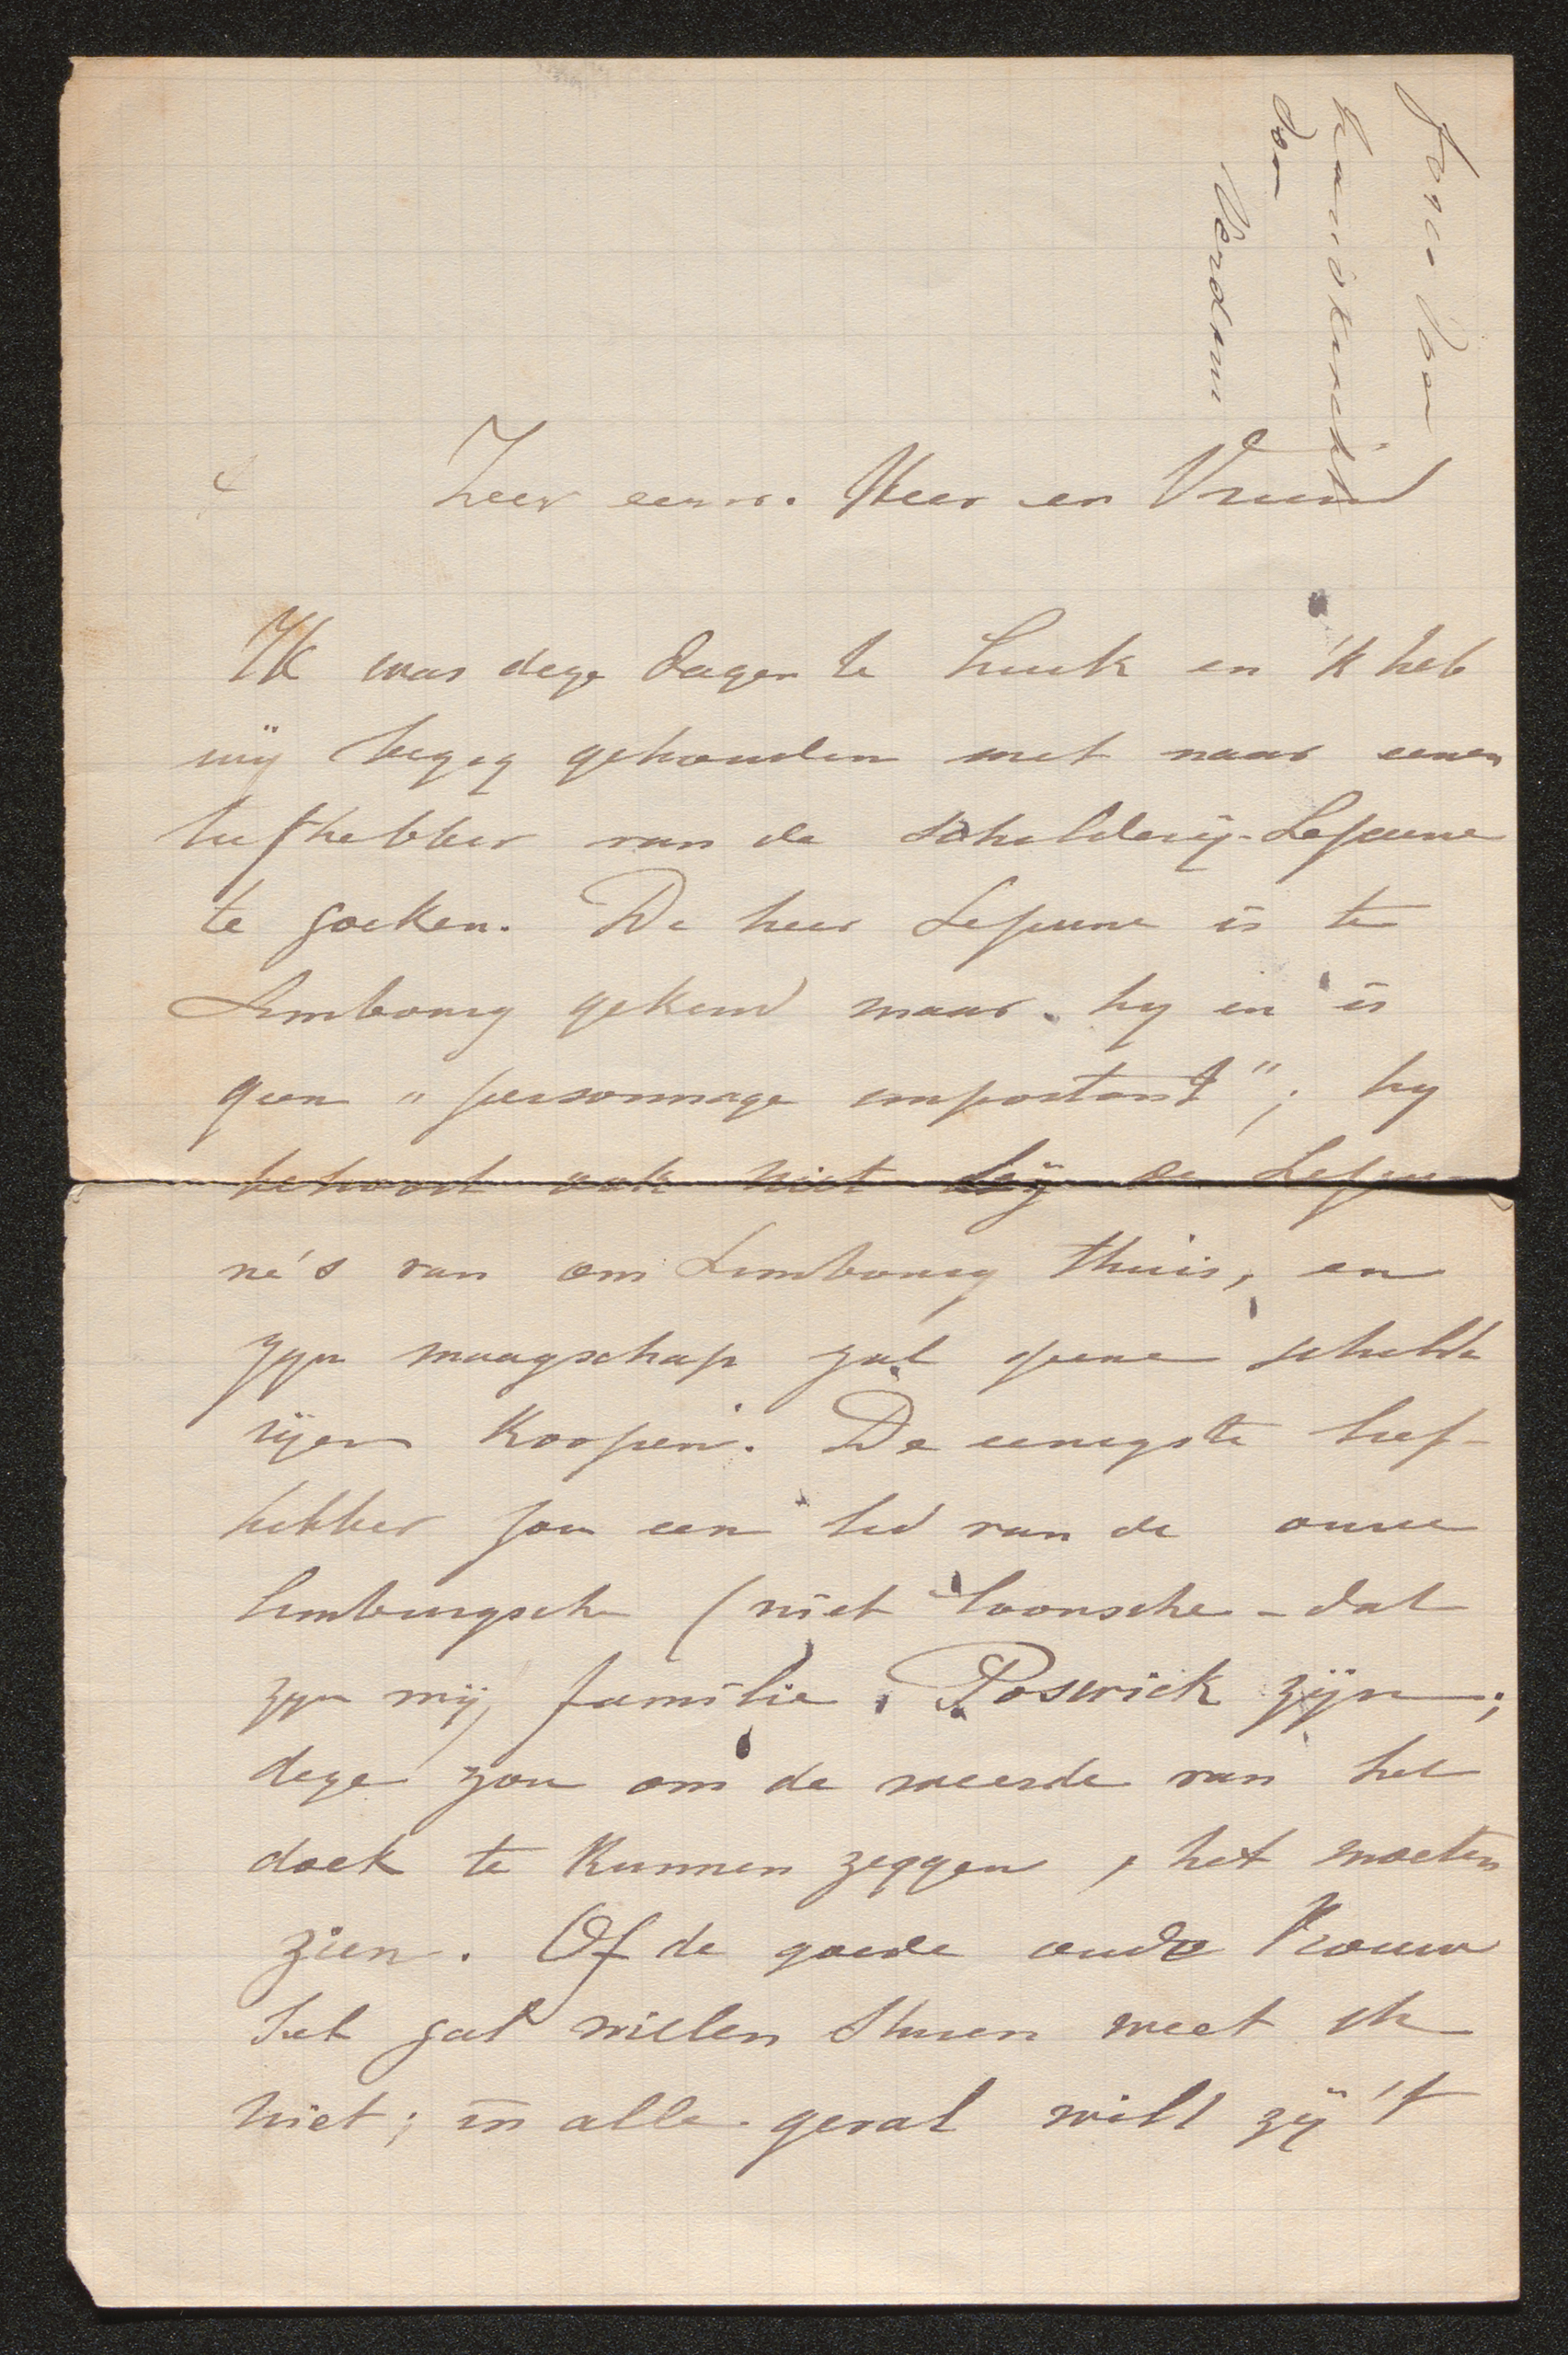 Zeer eerw. Heer en Vriend
Ik was deze dagen te Luik en 'k heb
mij bezig gehouden met naar eenen
liefhebber van de schilderij-Lejeune
te zoeken. De heer Lejeune is te
Limbourg gekend maar hij en is
geen "personnage important"; hij
behoort ook niet bij de Lejeu-
ne's van om Limbourg thuis, en
zijn maagschap zal geene schilde
rijen koopen. De eenigste lief-
hebber zou een lid van de
limburgsche (niet Loonsche - dat
zijn wij) familie Poswick zijn;
deze zou om de weerde van het
doek te kunnen zeggen, het moeten
zien. Of de goede oude Vrouw
het zal willen sturen weet ik
niet; in alle geval wilt zij 't
door